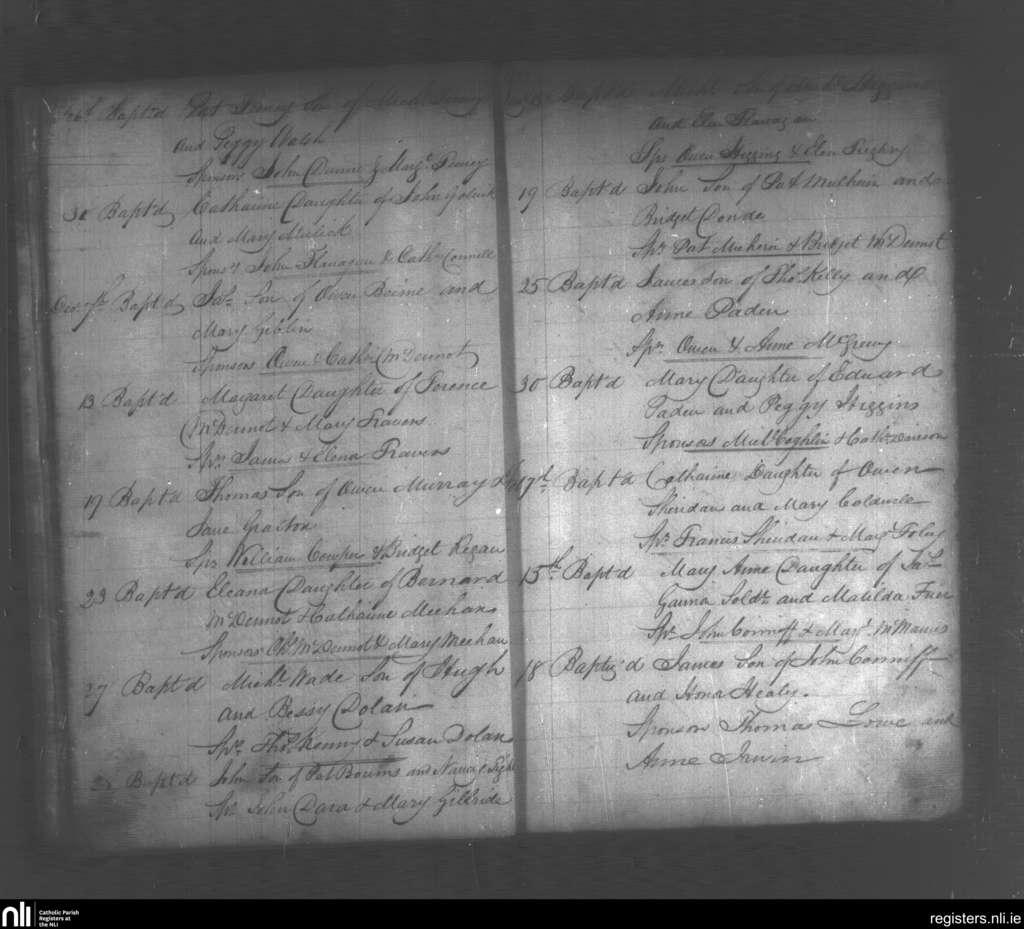 26th Bapt'd Pat Feeney Son of Michl Feeney
and Peggy Walsh
Sponsors John Dunne & Margt Feeney
30 Bapt'd Catharine Daughter of John
and Mary
Sponsrs John Flanagan & Cathn Connell
Decr 7th Bapt'd Jas Son of Owen Beirne and
Mary Giblin
Sponsors Owen & Cathn McDermot
13 Bapt'd Margaret Daughter of Terence
McDermot & Mary Travers
Sprs James & Elena Travers
19 Bapt'd Thomas Son of Owen Murray &
Jane
Sprs William Cowper & Bridget Regan
23 Bapt'd Eleana Daughter of Bernard
McDermot & Catharine Meehan
Sponsors McDermot & Mary Meehan
27 Bapt'd Michl Wade Son of Hugh
and Bessy Dolan
Sprs Thos Kenny & Susan Dolan
Bapt'd John Son of Pat and
Sprs John Dara & Mary Gilbride
Bapt'd Michl Son of Higgins
and Elen Flanagan
Sprs Owen Higgins & Elen
19 Bapt'd John Son of Pat Mulhern and
Bridget
Sprs Pat & Bridget McDermot
25 Bapt'd James Son of Thos Kelly and
Anne Paden
Sprs Owen & Anne McGreevy
30 Bapt'd Mary Daughter of Edward
Paden and Peggy Higgins
Sponsors Coghlin & Cathn
7th Bapt'd Catharine Daughter of Owen
Sheridan and Mary Coldwell
Sprs Francis Sheridan & Margt Foley
15th Bapt'd Mary Anne Daughter of Jas
Soldr and Matilda
Sprs John Conniff & Margt McManus
18 Baptiz'd James Son of John Conniff
and Honor Healy.
Sponsors Thomas Lowe and
Anne Irwin
nli
Catholic Parish
Registers at
the NLI
registers.nli.ie